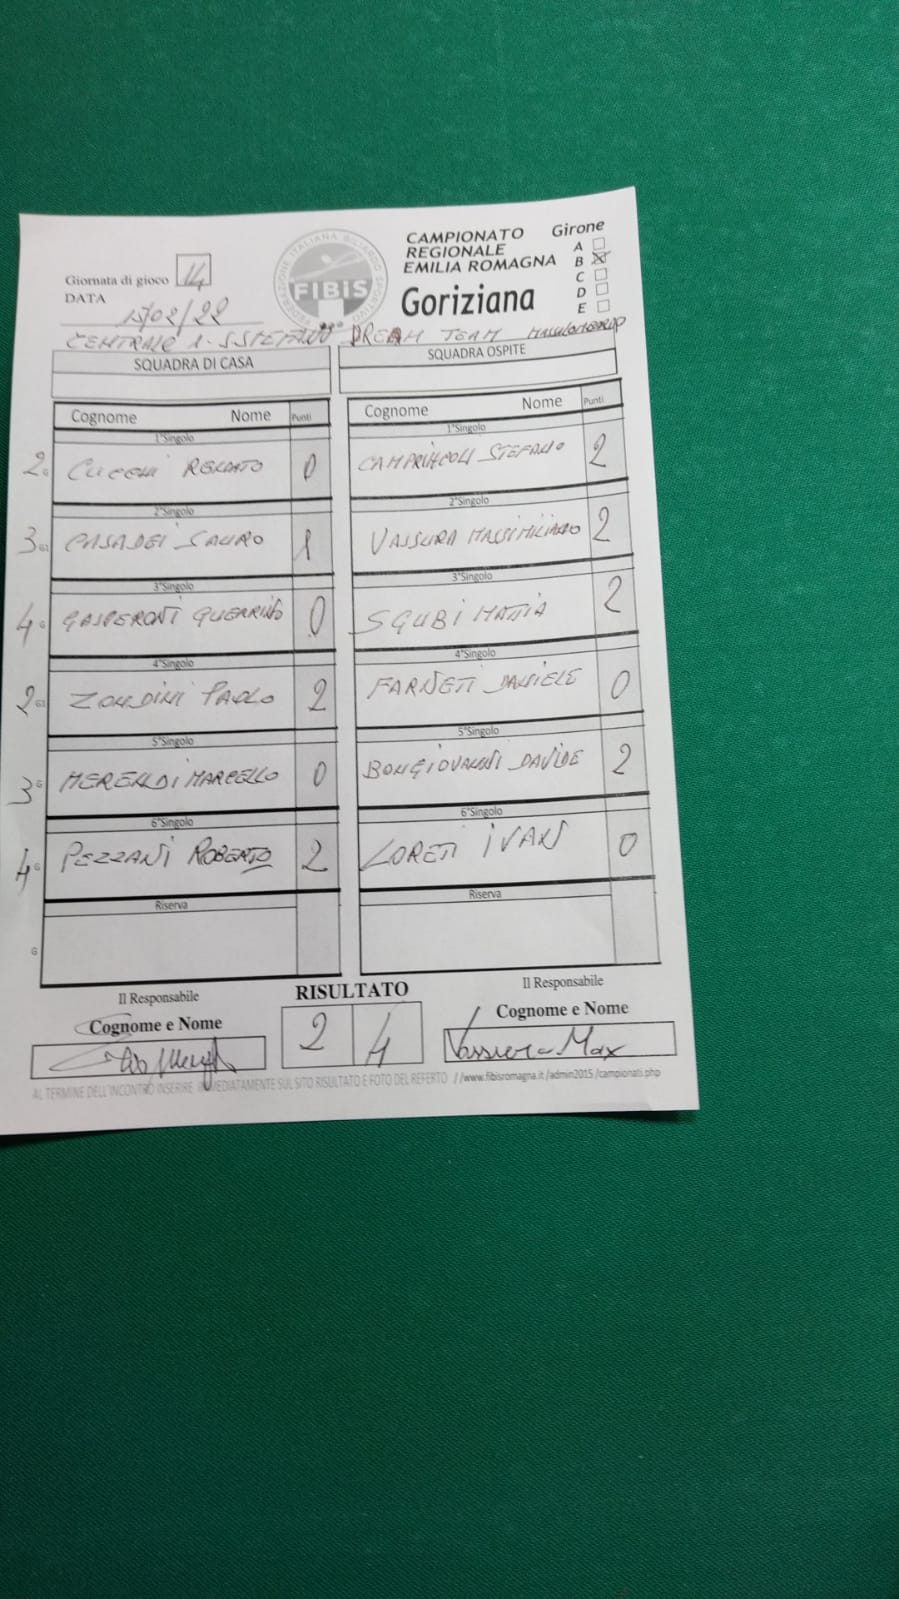 Giornata di gioco 14
DATA 15/02/22
FEDERAZIONE ITALIANA BILIARDO SPORTIVO
FIBIS
CAMPIONATO
REGIONALE
EMILIA ROMAGNA
Goriziana
Girone
A
B X
C
D
E
CENTRALE DREAM TEAM
SQUADRA DI CASA SQUADRA OSPITE
Cognome Nome Punti Cognome Nome Punti
1°Singolo 1°Singolo
2 RENATO 0 STEFANO 2
2°Singolo 2°Singolo
3 G1 CASADEI SAURO 1 VASSURA MASSIMILIANO 2
3°Singolo 3°Singolo
4 G GASPERONI GUERRINO 0 SGUBI MATTIA 2
4°Singolo 4°Singolo
2 G1 ZONDINI PAOLO 2 FARNETI DANIELE 0
5°Singolo 5°Singolo
3 G MERENDI MARCELLO 0 BONGIOVANNI DAVIDE 2
6°Singolo 6°Singolo
4 G PEZZANI ROBERTO 2 LORETI IVAN 0
Riserva Riserva
G
Il Responsabile RISULTATO Il Responsabile
Cognome e Nome Cognome e Nome
2 4 Vassura Max
AL TERMINE DELL'INCONTRO INSERIRE IMMEDIATAMENTE SUL SITO RISULTATO E FOTO DEL REFERTO //www.fibisromagna.it/admin2015/campionati.php